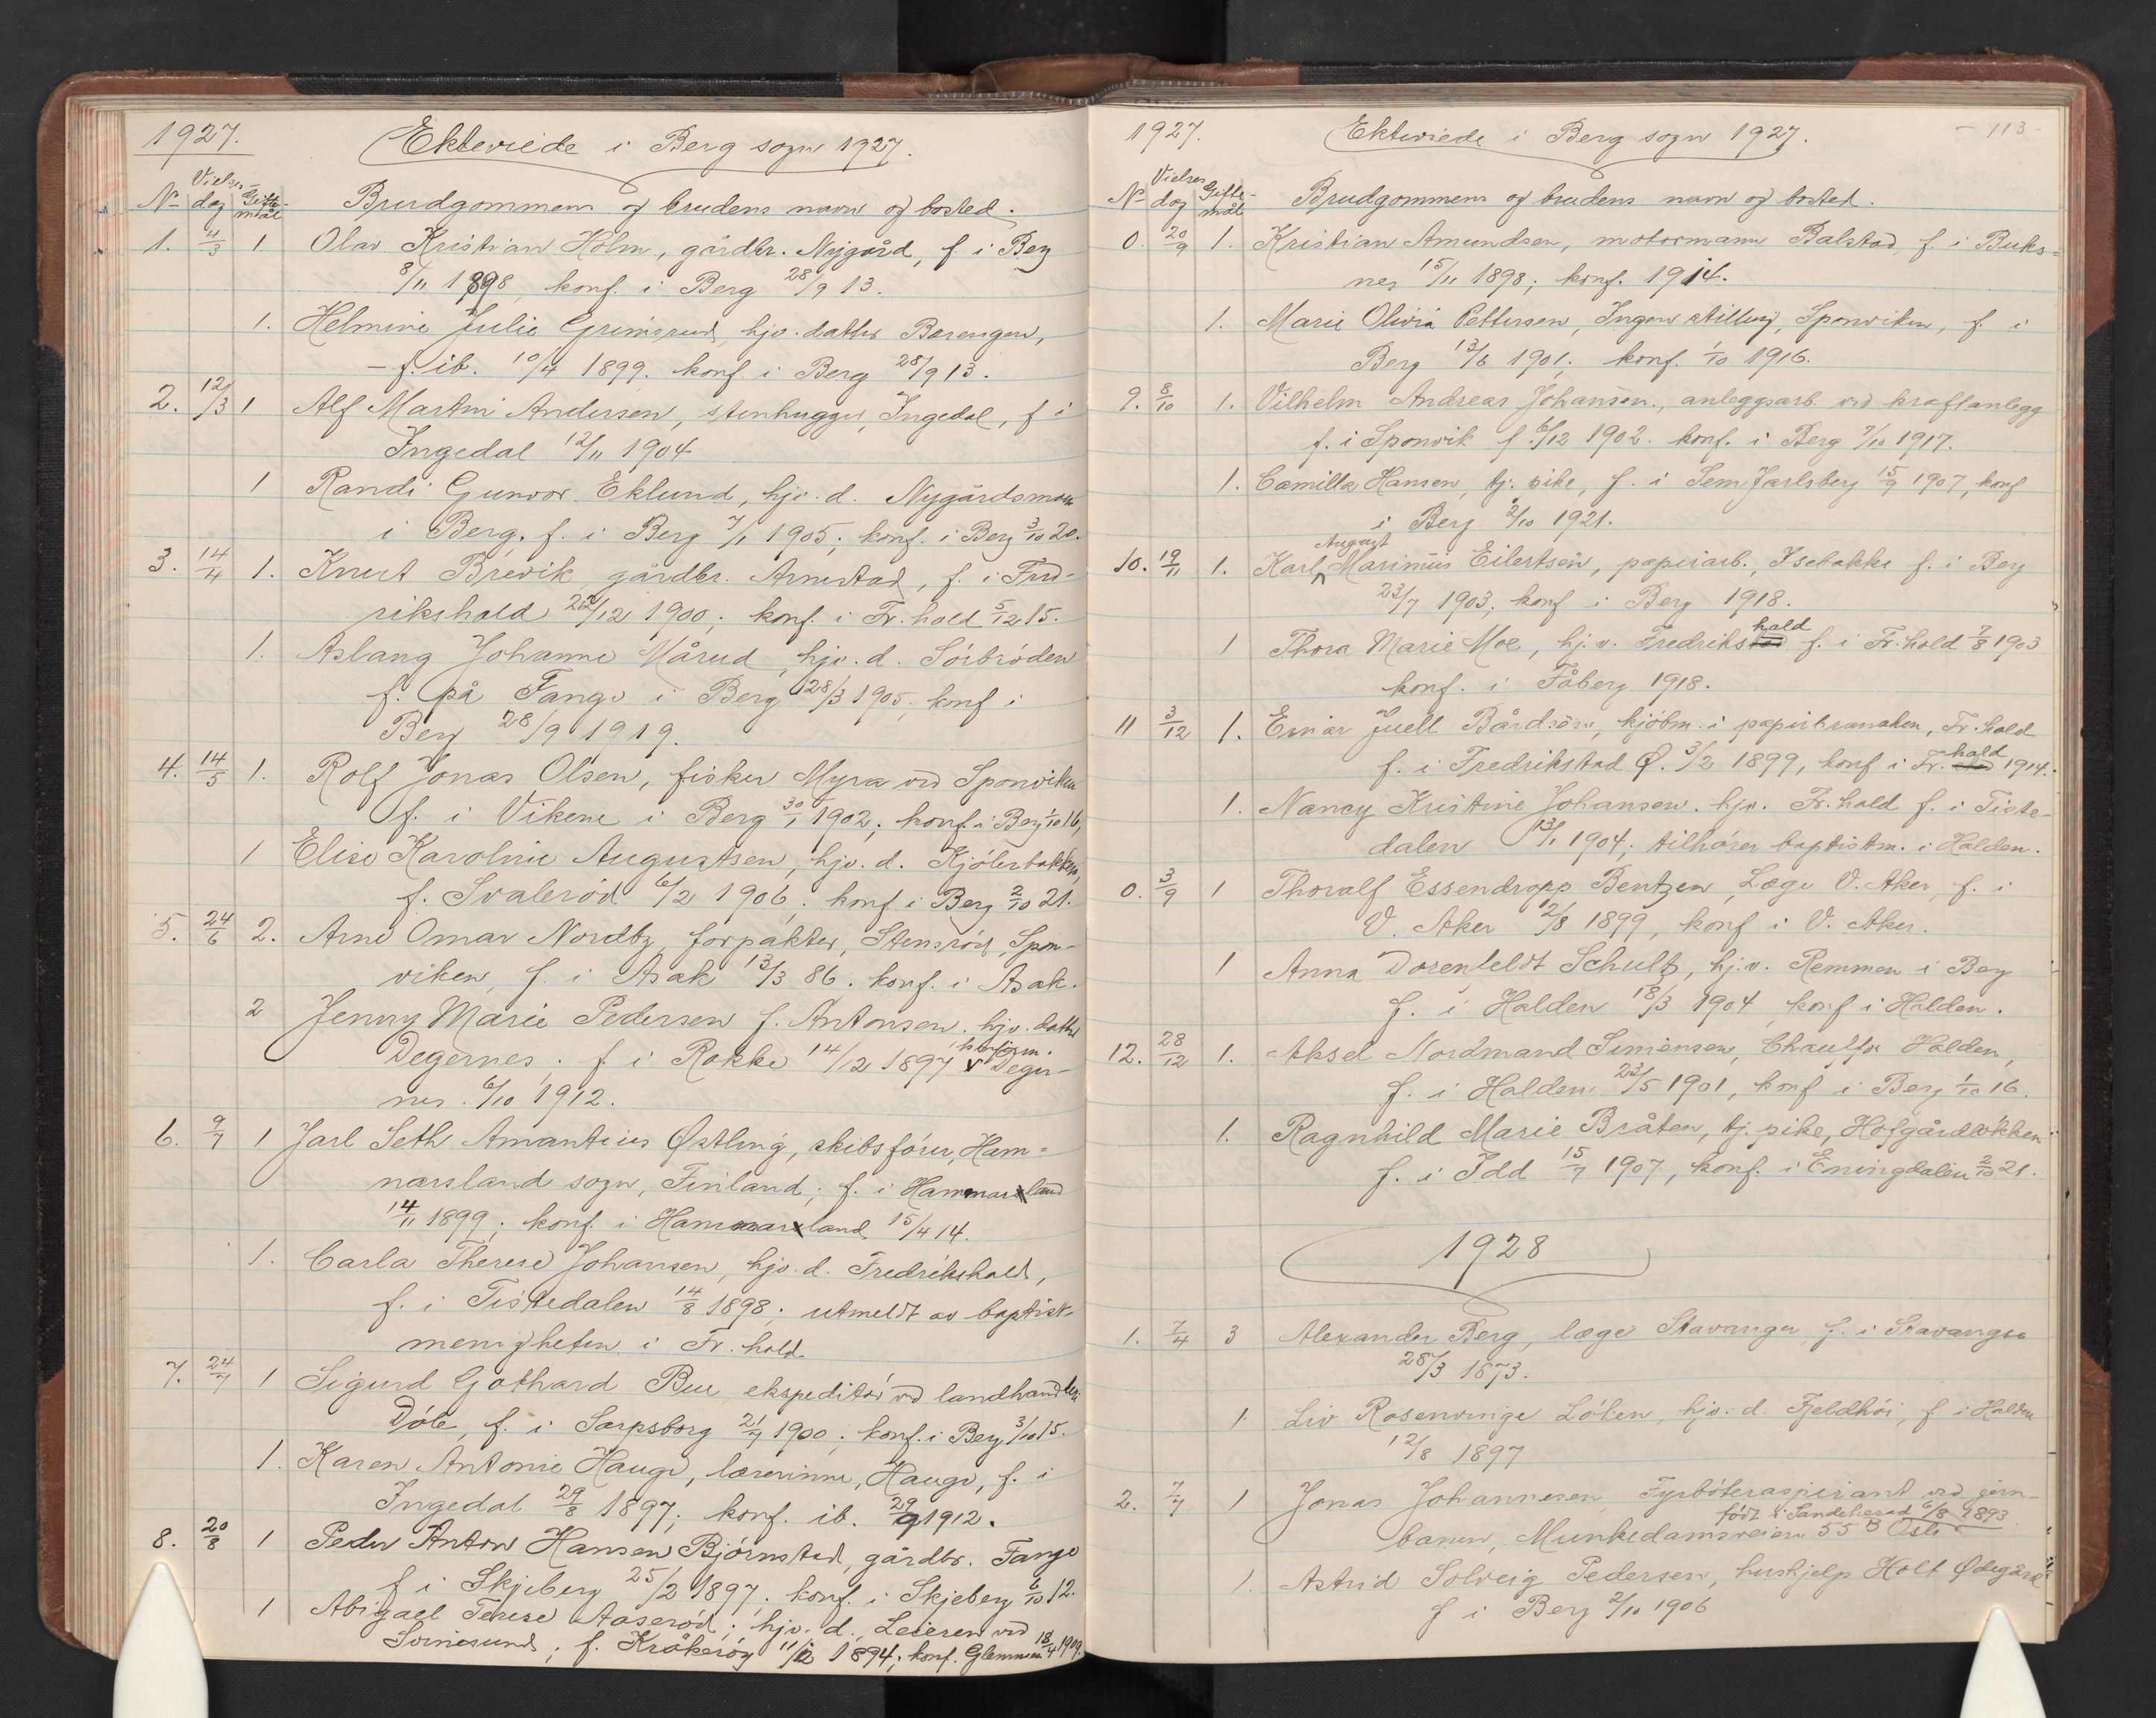 1927.
Ekteviede i Berg sogn 1927.
No Vielses-dag Gifte-mål Brudgommens og brudens navn og bosted.
1. 4/3 1 Olav Kristian Holm, gårdbr. Nygård, f. i Berg
8/11 1898, konf. i Berg 28/9 13.
1. Helmine Julie Grimsrud, hjv. datter Berengen,
- f. ib. 10/4 1899. konf. i Berg 28/9 13.
2. 12/3 1 Alf Martin Andersen, stenhugger, Ingedal, f i
Ingedal 12/11 1904
1 Randi Gunvor Eklund, hjv. d. Nygårdsmoen
i Berg. f. i Berg 7/1 1905; konf. i Berg 3/10 20.
3. 14/4 1. Knut Brevik gårdbr. Arnestad, f. i Fred-
rikshald 22/12 1900; konf. i Fr. hald 5/12 15.
1. Aslaug Johanne Mårud, hjv. d. Sörbröden
f. på Fange i Berg 28/3 1905; konf i
Berg 28/9 1919.
4. 14/5 1. Rolf Jonas Olsen, fisker Myra ved Sponviken
f. i Vikene i Berg 30/1 1902; konf. i Berg 1/10 16,
1 Elise Karoline Augustsen, hjv. d. Kjölerbakken,
f. Svaleröd 6/2 1906; konf i Berg 2/10 21.
5. 24/6 2. Arne Omar Nordby, forpakter, Stensröd, Spon-
viken, f. i Asak 13/3 86. konf. i Asak.
2 Jenny Marie Pedersen f. Antonsen. hjv. datter
Degernes; f i Rokke 14/12 1897 konfirm. v Deger-
nes. 6/10 1912.
6. 9/7 1 Jarl Seth Amantius Østling, skibsförer, Ham-
narsland sogn, Finland; f. i Hammarland
14/11 1899; konf. i Hammarland 15/4 14.
1. Carla Therese Johansen, hjv. d. Fredrikshald,
f. i Tistedalen 14/8 1898; utmeldt av baptist-
menigheten i Fr. hald.
7. 24/7 1 Sigurd Gothard Bue, ekspeditör ved landhandleri
Döle, f. i Sarpsborg 21/7 1900; konf. i Berg 3/10 15.
1. Karen Antonie Hauge, lærerinne, Hauge, f. i
Ingedal 29/8 1897; konf. ib. 29/9 1912.
8. 20/8 1 Peder Anton Hansen Björnstad, gårdbr. Fange
f i Skjeberg 25/2 1897. konf. i Skjeberg 6/10 12.
1 Abigael Terese Aaseröd; hjv. d., Leieren ved
Svinesund; f. Kråkeröy 11/12 1894; konf. Glemmen 18/4 1909.
1927.
Ekteviede i Berg sogn 1927.
- 113 -
No Vielses dag Gifte-mål Brudgommens og brudens navn og bosted.
0. 20/9 1. Kristian Amundsen, motormann Balstad, f. i Buks-
nes 15/11 1898; konf. 1914.
1. Marie Olivia Pettersen, Ingen stilling, Sponviken, f. i
Berg 13/6 1901; konf. 1/10 1916.
9. 8/10 1. Vilhelm Andreas Johansen., anleggsarb. ved kraftanlegg
f. i Sponvik f 6/12 1902. konf. i Berg 7/10 1917.
1. Camilla Hansen, tj. pike, f. i Sem Jarlsberg 15/9 1907, konf
i Berg 2/10 1921.
August
10. 19/11 1. Karl Marinius Eilertsen, papirarb., Isebakke f. i Berg
23/7 1903; konf i Berg 1918.
1 Thora Marie Moe, hj. v. Fredrikshald f. i Fr. hald 7/8 1903
konf. i Fåberg 1918.
11 3/12 1. Einar Juell Bårdsen, kjöbm. i papirbransken, Fr. hald
f. i Fredrikstad Ø. 3/2 1899, konf i Fr. hald 1914.
1. Nancy Kristine Johansen. hjv. Fr. hald f. i Tiste-
dalen 13/1 1904; tilhörer baptistm. i Halden.
0. 3/9 1 Thoralf Essendropp Bentzen, Læge V. Aker, f. i
V. Aker 12/8 1899, konf i V. Aker.
1 Anna Dorenfeldt Schultz, hj. v. Remmen i Berg
f. i Halden 18/3 1904, konf i Halden.
12. 28/12 1. Aksel Nordmand Simensen, Chauffør Halden,
f. i Halden 23/5 1901, konf i Berg 1/10 16.
1. Ragnhild Marie Bråten, tj. pike, Hofgårdløkken
f. i Idd 15/7 1907, konf. i Enningdalen 2/10 21.
1928
1. 7/4 3 Alexander Berg, læge Stavanger f. i Stavanger
28/3 1873.
1 Liv Rosenvinge Löken, hjv. d. Fjeldhöi, f i Halden
12/8 1897
2. 7/7 1 Jonas Johannesen Fyrböteraspirant ved jern-
født i Sandeherad 6/8 1893
banen, Munkedamsveien 55 B Oslo
1. Astrid Solveig Pedersen, hushjelp Holt Ødegård
f i Berg 2/10 1906